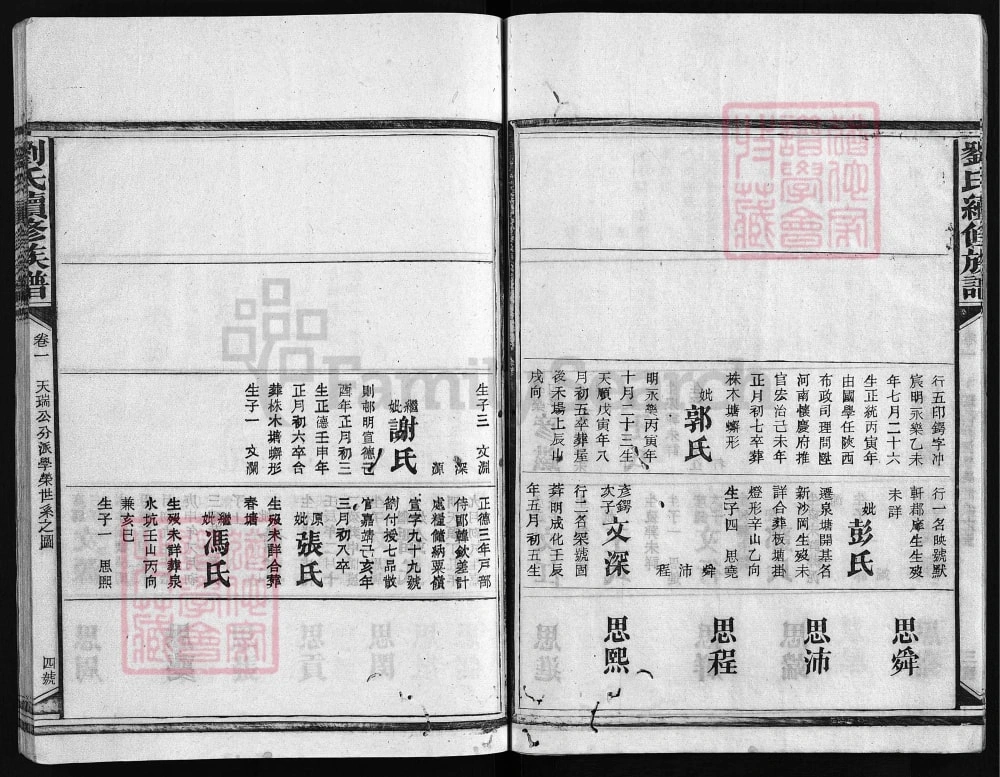 劉氏續修族譜
行五印鍔字冲
宸明永樂乙未
年七月二十六
生正統丙寅年
由國學任陝西
布政司理問陞
河南懷慶府推
官宏治己未年
正月初七卒葬
株木塘蠏形
妣郭氏
明永樂丙寅年
十月二十三生
天順戊寅年八
月初五卒葬屋
後禾場上辰山
戌向
生子三 文淵
深
源
繼妣謝氏
則邨明宣德己
酉年正月初三
生正德壬申年
正月初六卒合
葬株木塘蠏形
生子一 文瀾
行一名映號默
軒郡庠生生歿
未詳
妣彭氏
遷泉塘開基名
新沙岡生歿未
詳合葬板塘掛
燈形辛山乙向
生子四 思堯
舜
沛
程
彥鍔次子文深
行二名榘號囦
莽明成化壬辰
年五月初五生
正德三年戶部
侍郎韓欽差計
處糧儲納粟償
宣字九十九號
劉付授七品散
官嘉靖己亥年
三月初八卒
原妣張氏
生歿未詳合葬
春塘
繼妣馮氏
生歿未詳葬泉
水坑壬山丙向
兼亥巳
生子一 思熙
思舜
思沛
思程
思熙
劉氏續修族譜
卷一
天瑞公分派學榮世系之圖
四號
FamilySearch